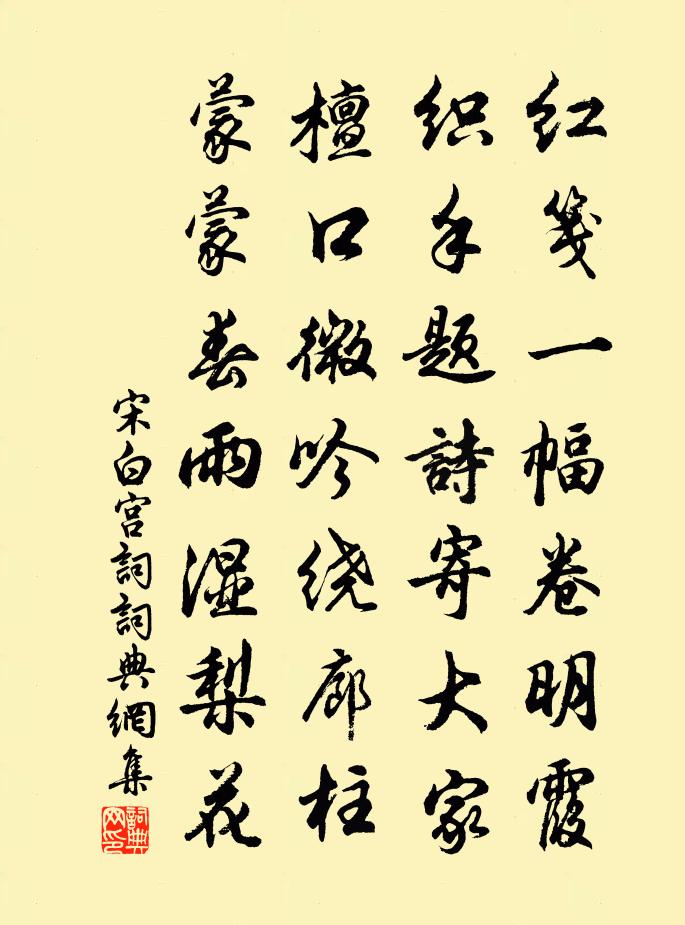 红笺一幅卷明霞
织手题詩寄大家
檀口微吟绕廊柱
蒙蒙春雨湿梨花
宋白宫詞詞典網集
詞典网印